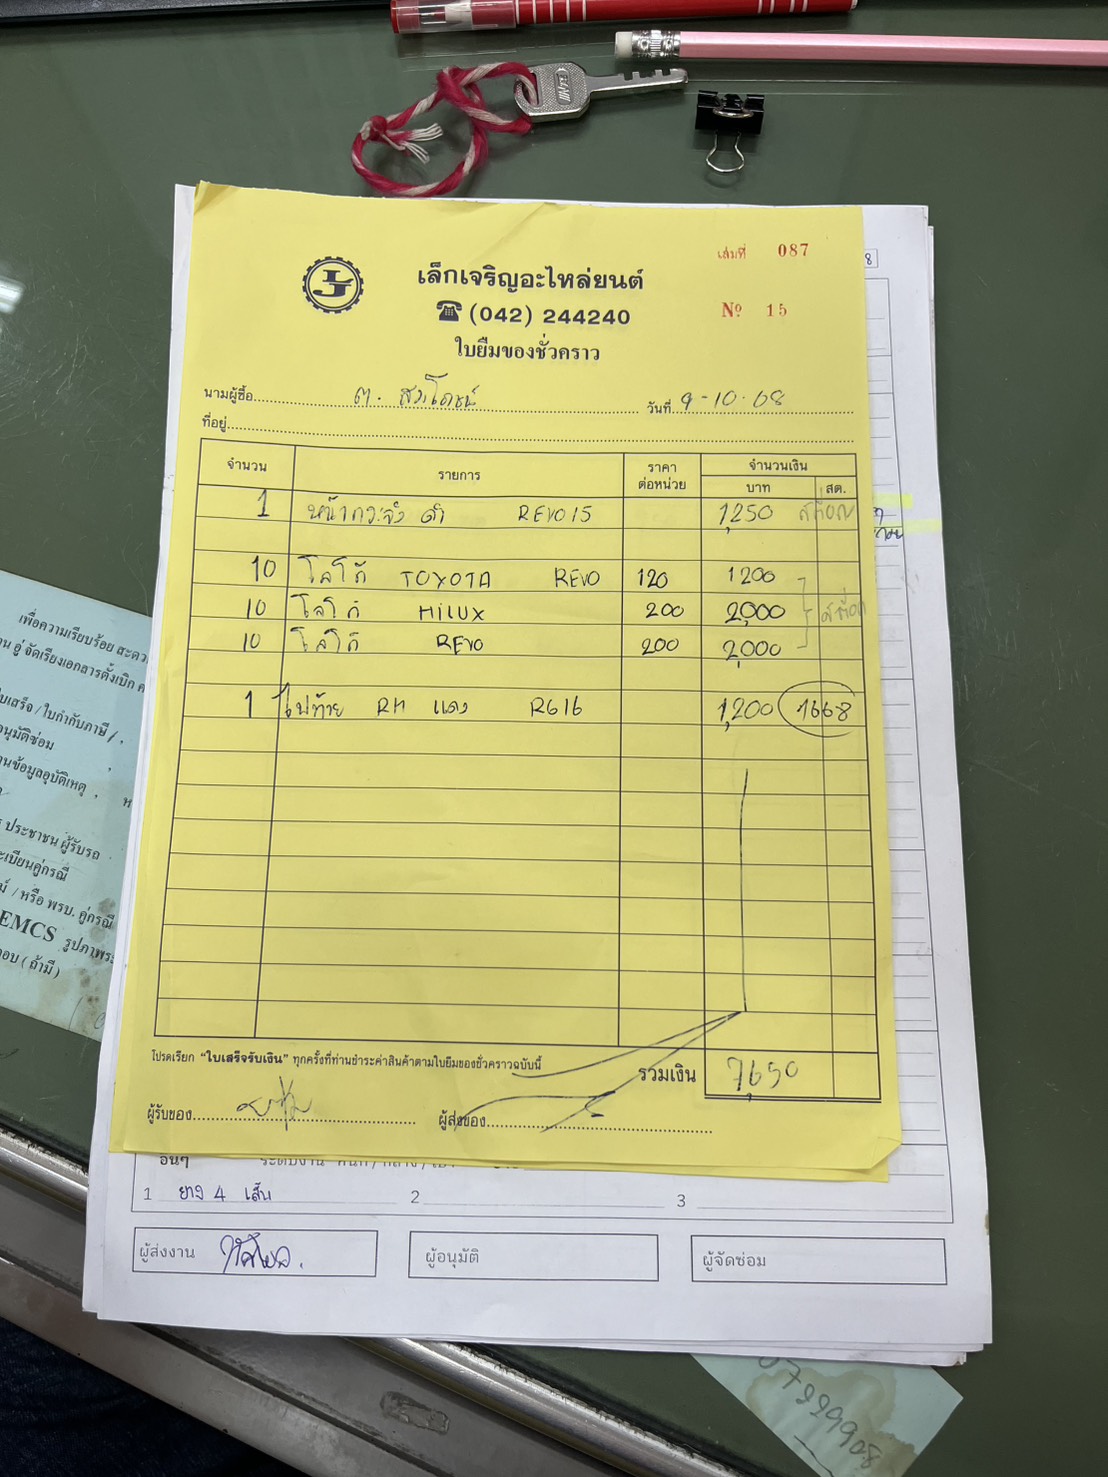 เล่มที่ 087
เล็กเจริญอะไหล่ยนต์
LJ
(042) 244240
Nº 15
ใบยืมของชั่วคราว
นามผู้ซื้อ
วันที่ 9-10-68
ที่อยู่
จำนวน รายการ ราคาต่อหน่วย จำนวนเงิน
บาท สต.
1 หน้ากระจัง ดำ REVO15 1,250 สต๊อก
10 โลโก้ TOYOTA REVO 120 1200
10 โลโก้ HiLUX 200 2,000 สต๊อก
10 โลโก้ REVO 200 2,000
1 ไฟท้าย RH แดง R616 1,200 1668
โปรดเรียก "ใบเสร็จรับเงิน" ทุกครั้งที่ท่านชำระค่าสินค้าตามใบยืมของชั่วคราวฉบับนี้
รวมเงิน 7,650
ผู้รับของ ผู้ส่งของ
อื่นๆ
1 ยาง 4 เส้น 2 3
ผู้ส่งงาน ผู้อนุมัติ ผู้จัดซ่อม
เพื่อความเรียบร้อย
อู่ จัดเรียงเอกสารตั้งเบิก
/ ใบกำกับภาษี
อนุมัติซ่อม
ข้อมูลอุบัติเหตุ
ประชาชน ผู้รับรถ
/ หรือ พรบ. คู่กรณี
EMCS
( ถ้ามี )